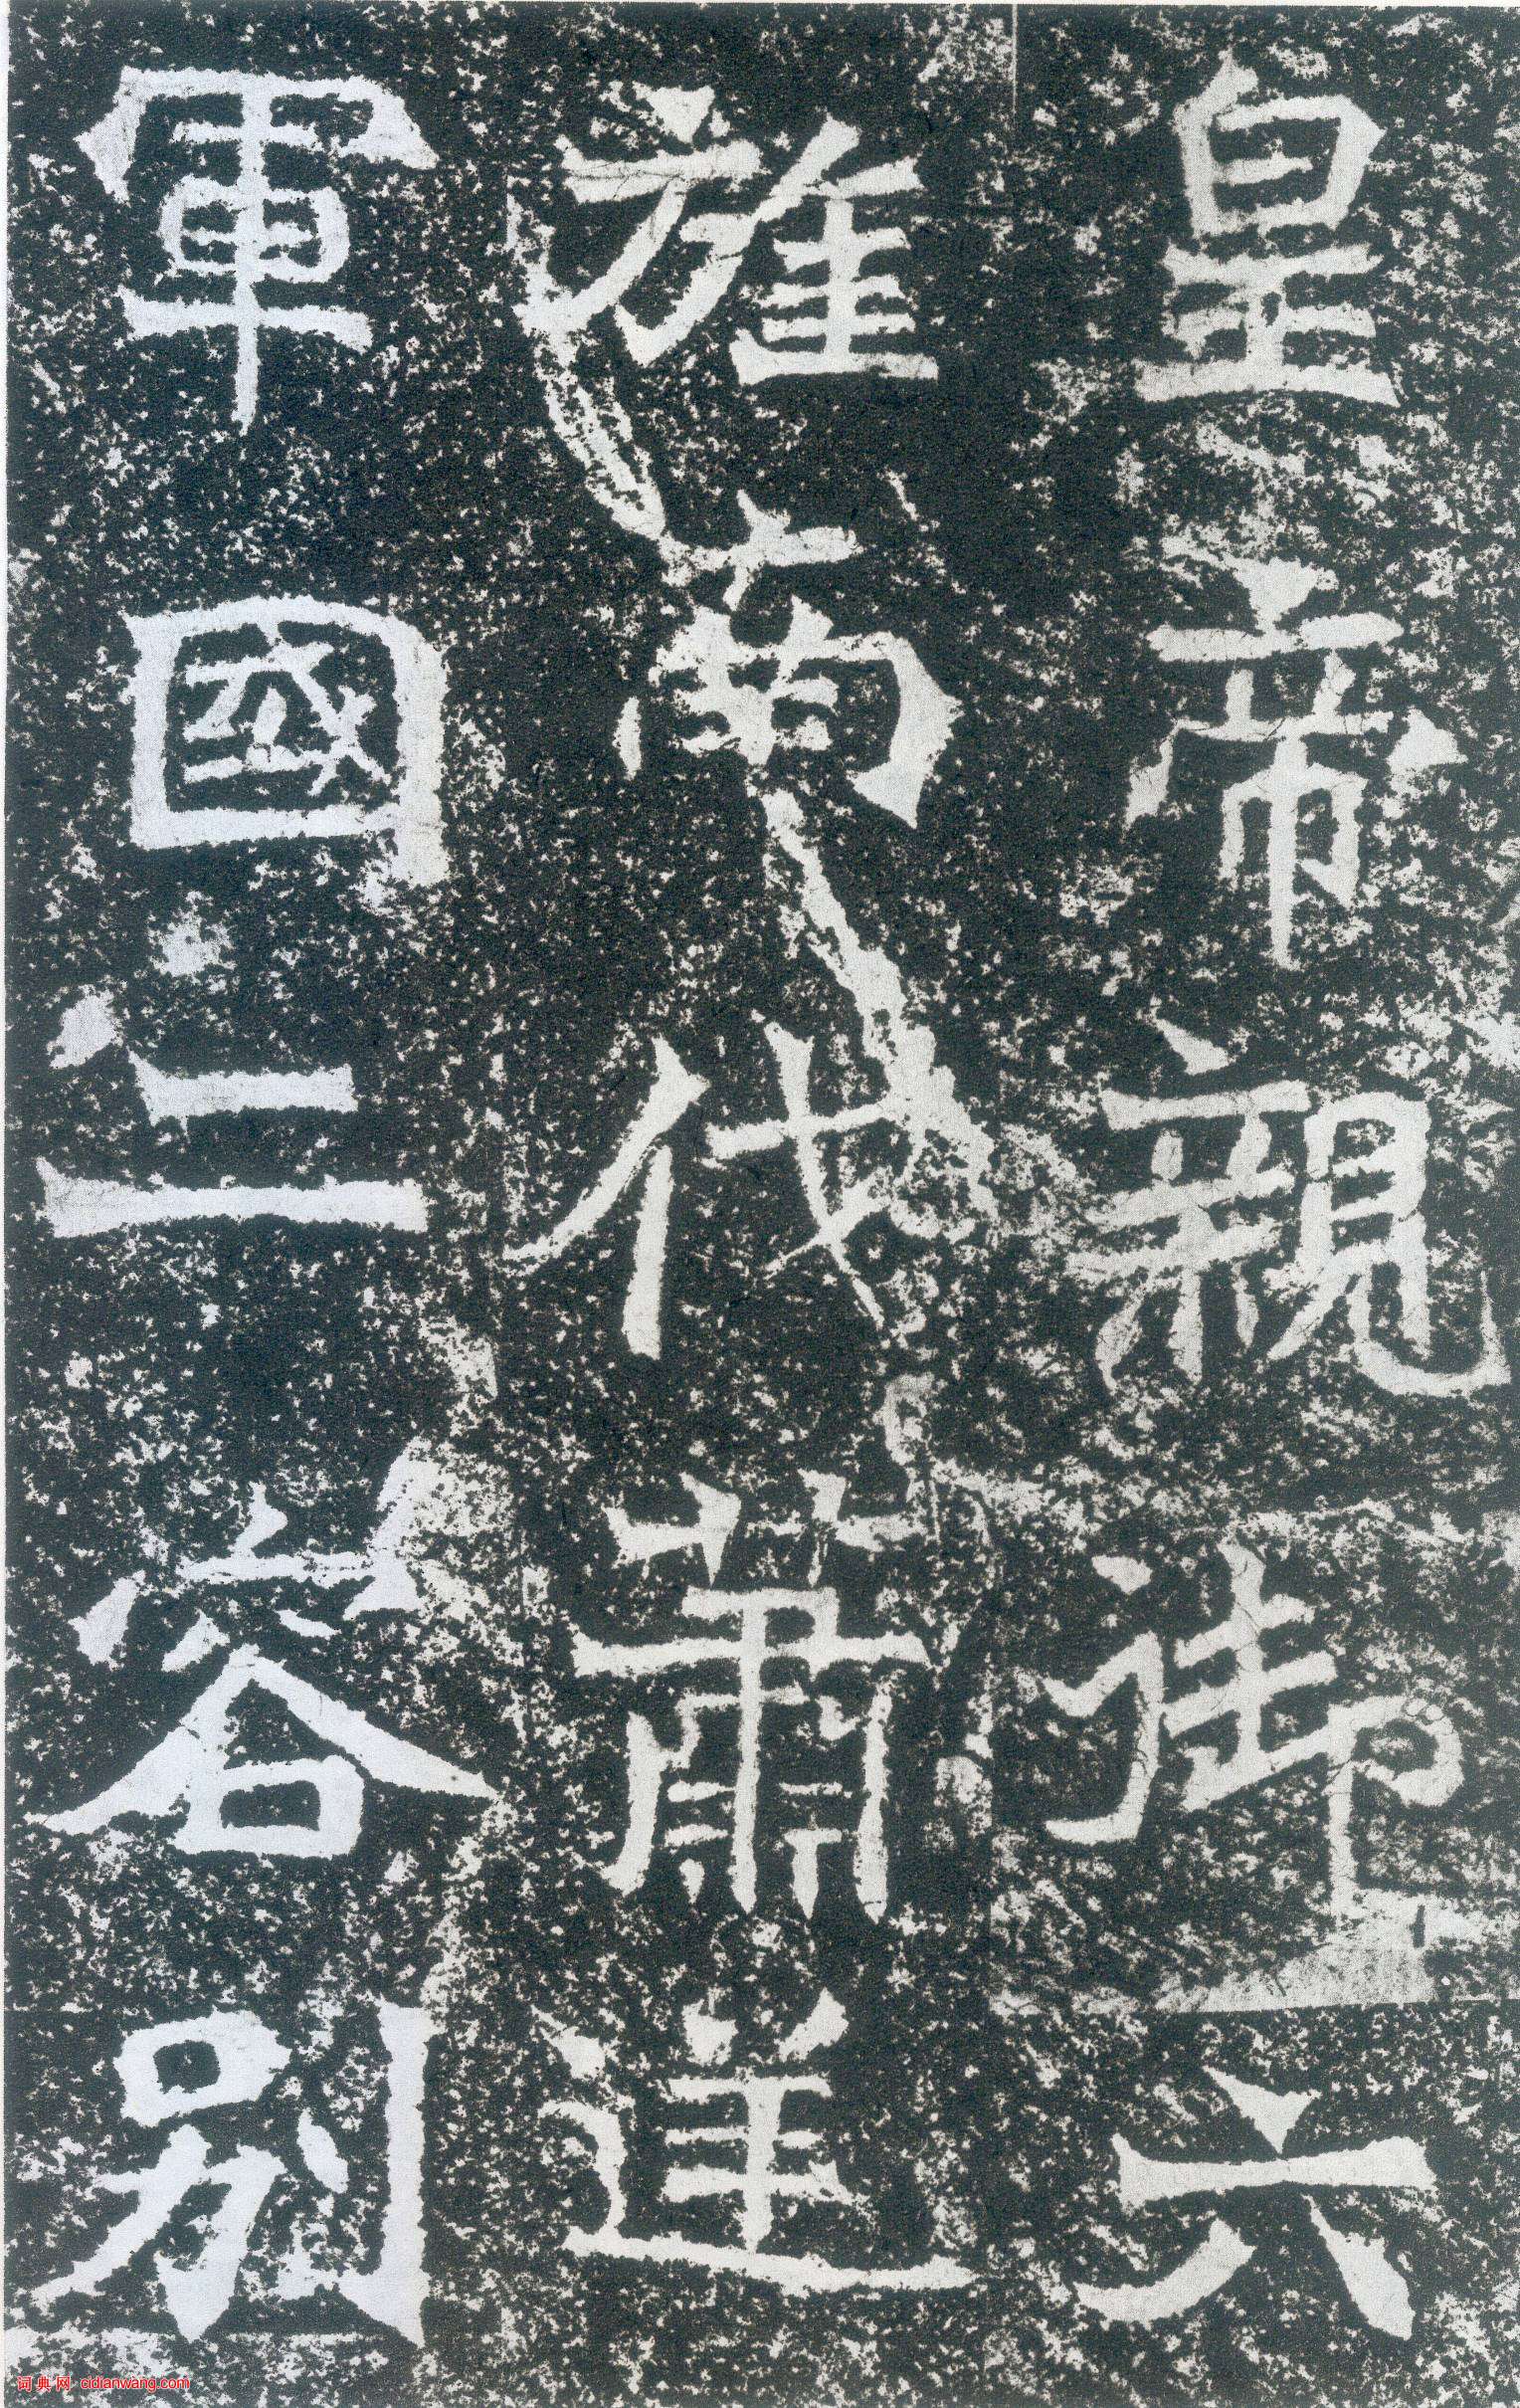 皇帝親御六
旌南伐蕭逆
軍國二容別
词典网 cidianwang.com